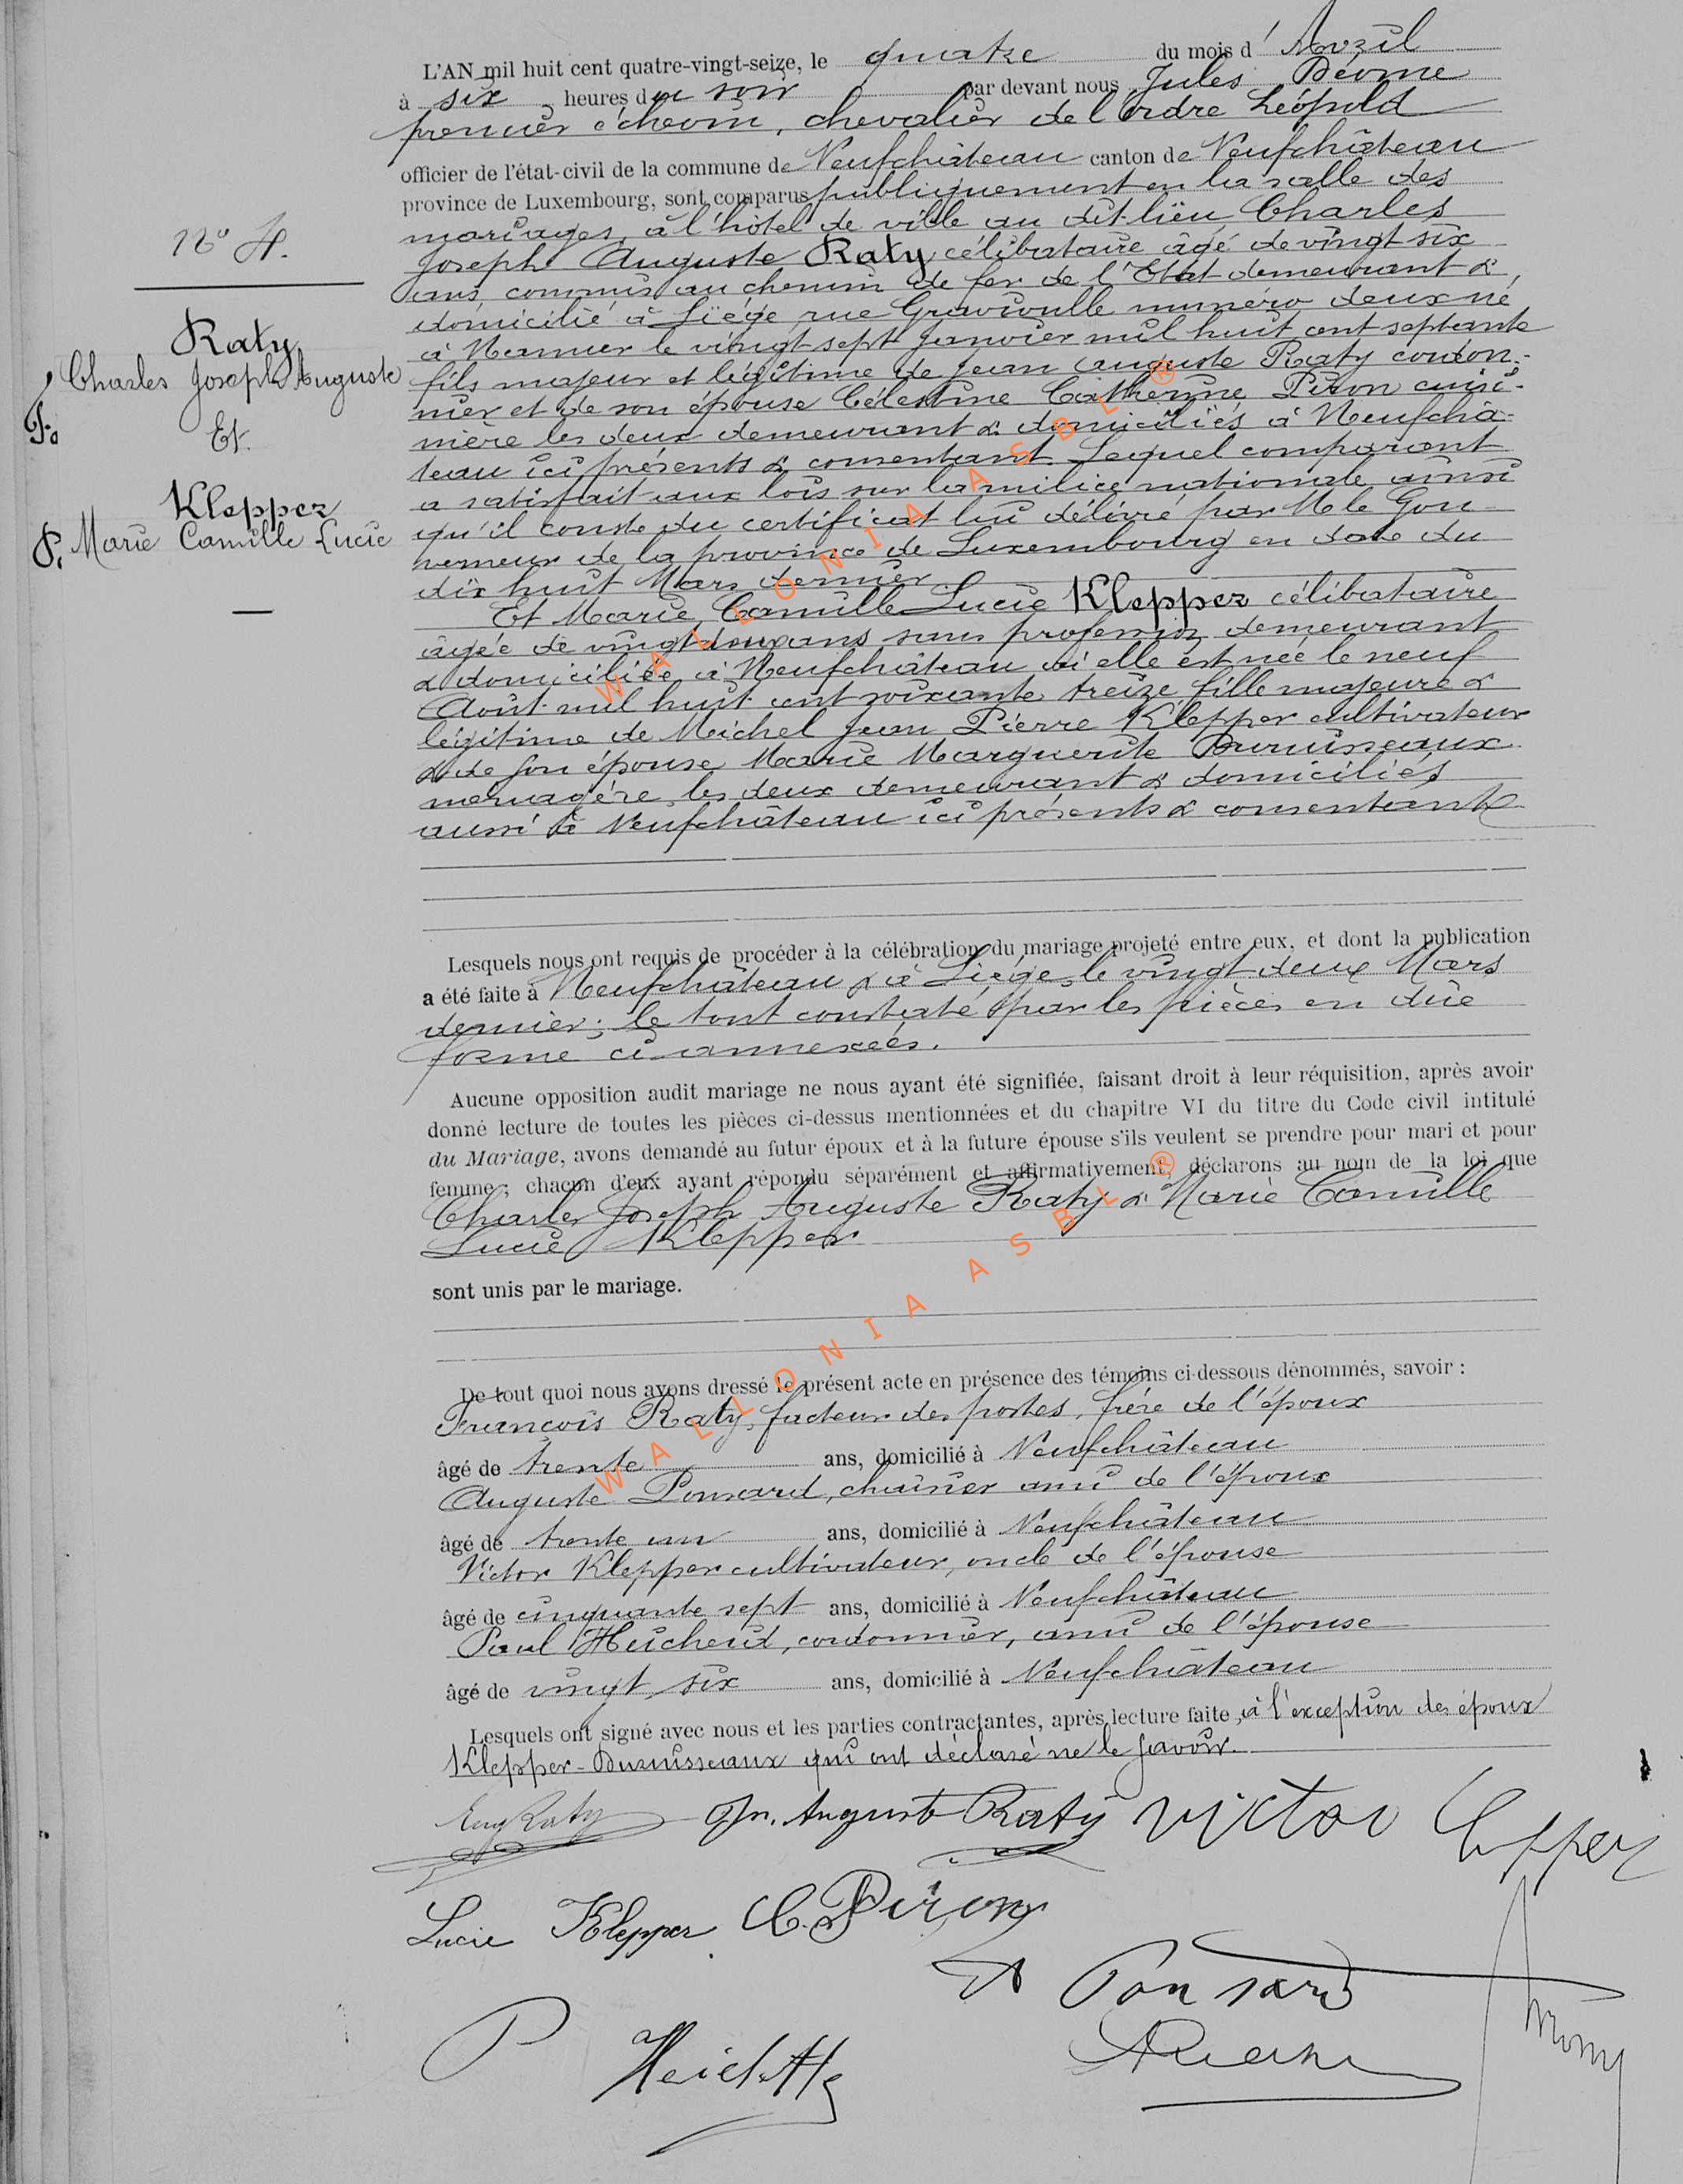 L'AN mil huit cent quatre-vingt-seize, le quatre du mois d'Avril
à six heures du soir par devant nous Jules Déome
premier échevin, chevalier de l'ordre Léopold
officier de l'état-civil de la commune de Neufchâteau canton de Neufchâteau
province de Luxembourg, sont comparus publiquement en la salle des
mariages, à l'hôtel de ville au dit lieu, Charles
Joseph Auguste Raty célibataire âgé de vingt-six
ans, commis au chemin de fer de l'Etat demeurant &
domicilié à Liège rue Gravioulle numéro deux né
à Namur le vingt-sept Janvier mil huit cent septante
fils majeur et légitime de Jean Auguste Raty cordon-
nier et de son épouse Célestine Catherine Piron cuisi-
nière les deux demeurant & domiciliés à Neufchâ-
teau ici présents & consentant. Lequel comparant
a satisfait aux lois sur la milice nationale ainsi
qu'il conste du certificat lui délivré par M le Gou-
verneur de la province de Luxembourg en date du
dix huit Mars dernier
Et Marie Camille Lucie Klepper célibataire
âgée de vingt deux ans sans profession demeurant
& domiciliée à Neufchâteau où elle est née le neuf
Août mil huit cent soixante treize fille majeure &
légitime de Michel Jean Pierre Klepper cultivateur
& de son épouse Marie Marguerite Duruisseaux
menagére les deux demeurant & domiciliés
aussi à Neufchâteau ici présents & consentants
N° 4.
Raty
Charles Joseph Auguste
Et
Klepper
Marie Camille Lucie
Lesquels nous ont requis de procéder à la célébration du mariage projeté entre eux, et dont la publication
a été faite à Neufchâteau & à Liège, le vingt deux Mars
dernier; le tout constaté par les pièces en dûe
forme ci-annexées.
Aucune opposition audit mariage ne nous ayant été signifiée, faisant droit à leur réquisition, après avoir
donné lecture de toutes les pièces ci-dessus mentionnées et du chapitre VI du titre du Code civil intitulé
du Mariage, avons demandé au futur époux et à la future épouse s'ils veulent se prendre pour mari et pour
femme; chacun d'eux ayant répondu séparément et affirmativement, déclarons au nom de la loi que
Charles Joseph Auguste Raty & Marie Camille
Lucie Klepper
sont unis par le mariage.
De tout quoi nous avons dressé le présent acte en présence des témoins ci-dessous dénommés, savoir :
François Raty, facteur des postes, frére de l'époux
âgé de trente ans, domicilié à Neufchâteau
Auguste Ponsard, chaisier ami de l'époux
âgé de trente un ans, domicilié à Neufchâteau
Victor Klepper cultivateur, oncle de l'épouse
âgé de cinquante sept ans, domicilié à Neufchâteau
Paul Heichend, cordonnier, ami de l'épouse
âgé de vingt six ans, domicilié à Neufchâteau
Lesquels ont signé avec nous et les parties contractantes, après lecture faite, à l'exception des époux
Klepper-Duruisseaux qui ont déclaré ne le savoir.
Raty Jn. Auguste Raty Victor Klepper
Lucie Klepper C. Piron
A Ponsard
P
WALLONIA ASBL ®
WALLONIA ASBL ®